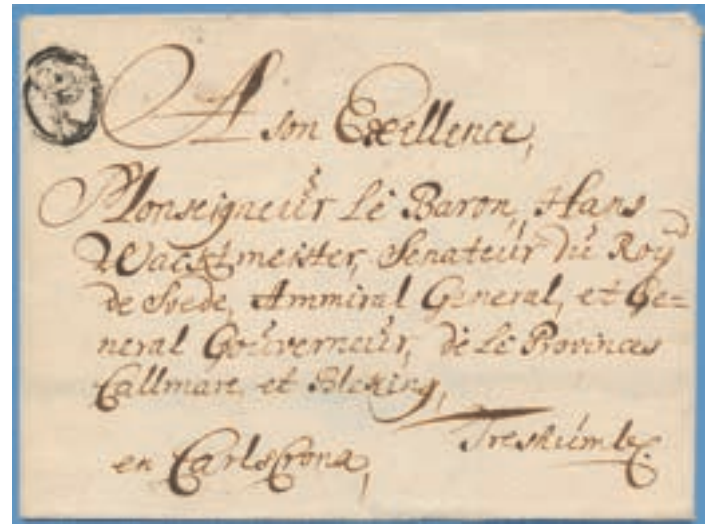 A son Exellence,
Monseigneur Le Baron, Hans
Wacktmeister, Senateur du Roy
de Svede, Ammiral General, et Ge=
neral Gouverneur, de Le Provinces
Callmare, et Bleking,
Treshumle
en Carlscrona,